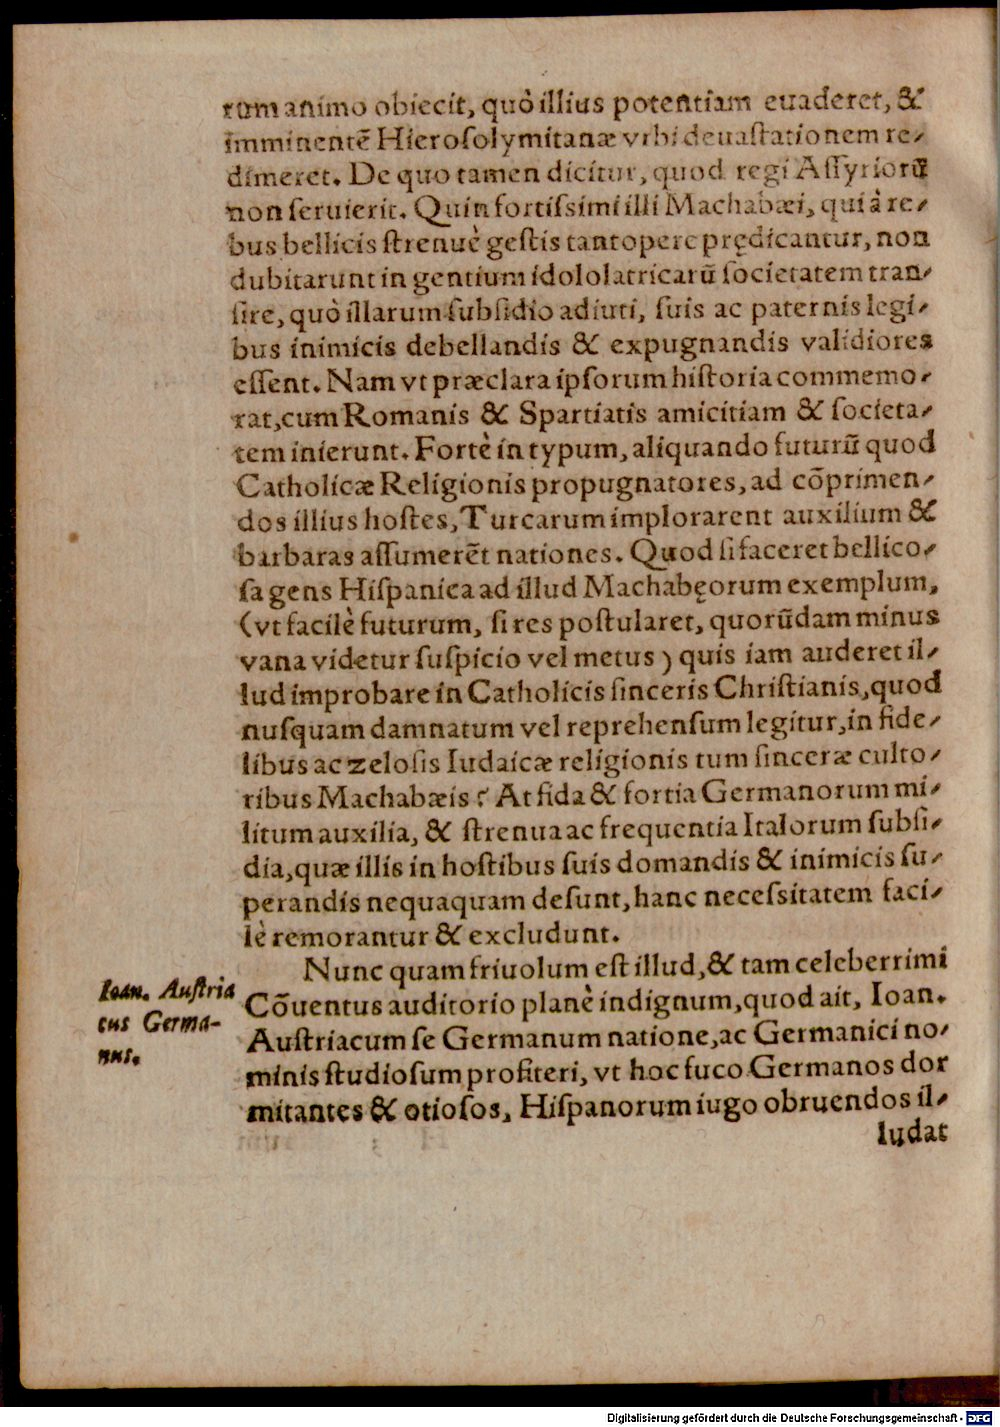 rum animo obiecit, quò illius potentiam euaderet, &
imminentē Hierosolymitanæ vrbi deuastationem re-
dimeret. De quo tamen dicitur, quod regi Assyriorū
non seruierit. Quin fortissimi illi Machabæi, qui à re-
bus bellicis strenuè gestis tantopere prędicantur, non
dubitarunt in gentium idololatricarū societatem tran-
sire, quò illarum subsidio adiuti, suis ac paternis legi-
bus inimicis debellandis & expugnandis validiores
essent. Nam vt præclara ipsorum historia commemo-
rat, cum Romanis & Spartiatis amicitiam & societa-
tem inierunt. Fortè in typum, aliquando futurū quod
Catholicæ Religionis propugnatores, ad cōprimen-
dos illius hostes, Turcarum implorarent auxilium &
barbaras assumerēt nationes. Quod si faceret bellico-
sa gens Hispanica ad illud Machabęorum exemplum,
(vt facilè futurum, si res postularet, quorūdam minus
vana videtur suspicio vel metus) quis iam auderet il-
lud improbare in Catholicis sinceris Christianis, quod
nusquam damnatum vel reprehensum legitur, in fide-
libus ac zelosis Iudaicæ religionis tum sinceræ culto-
ribus Machabæis? At fida & fortia Germanorum mi-
litum auxilia, & strenua ac frequentia Italorum subsi-
dia, quæ illis in hostibus suis domandis & inimicis su-
perandis nequaquam desunt, hanc necessitatem faci-
lè remorantur & excludunt.
Nunc quam friuolum est illud, & tam celeberrimi
Cōuentus auditorio planè indignum, quod ait, Ioan.
Austriacum se Germanum natione, ac Germanici no-
minis studiosum profiteri, vt hoc fuco Germanos dor
mitantes & otiosos, Hispanorum iugo obruendos il-
ludat
Ioan. Austria
cus Germa-
nus.
Digitalisierung gefördert durch die Deutsche Forschungsgemeinschaft - DFG